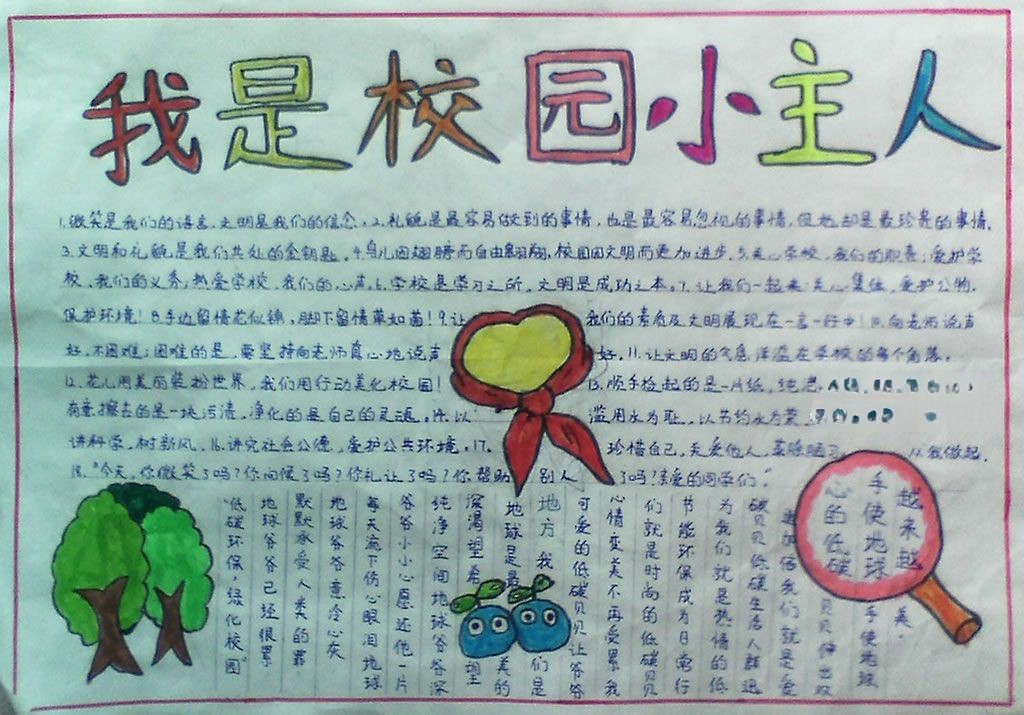 我是校园小主人
1.微笑是我们的语言,文明是我们的信念。2.礼貌是最容易做到的事情,也是最容易忽视的事情,但她却是最珍贵的事情.
3.文明和礼貌是我们共处的金钥匙。4.鸟儿因翅膀而自由翱翔,校园因文明而更加进步.5.关心学校,我们的职责;爱护学
校,我们的义务;热爱学校,我们的心声.6.学校是学习之所,文明是成功之本。7.让我们一起来:关心集体,爱护公物.
保护环境!8.手边留情花似锦,脚下留情草如茵!9.让我们的素质及文明展现在一言一行中!10.向老师说声
好,不困难;困难的是,要坚持向老师真心地说声好,11.让文明的气息洋溢在学校的每个角落。
12.花儿用美丽装扮世界,我们用行动美化校园!13.顺手捡起的是一片纸,纯洁
有意擦去的是一块污渍,净化的是自己的灵魂。14.以滥用水为耻,以节约水为荣.
讲科学,树新风,16.讲究社会公德,爱护公共环境,17.珍惜自己,关爱他人,革除陋习从我做起.
18."今天,你微笑了吗?你问候了吗?你礼让了吗?你帮助别人了吗?亲爱的同学们"
越来越
手使地球
心的低碳
美.
手使地球
贝贝伸出双
更加信我们就是爱
碳贝贝低碳生活人群迅
为我们就是热情的低
节能环保成为日常行
们就是时尚的低碳贝贝
心情变美不再受累我
可爱的低碳贝贝让爷爷
地方我们是
地球是最美的
深渴望希望
纯净空间地球爷爷深
爷爷小小心愿还他一片
每天流下伤心眼泪地球
地球爷爷意冷心灰
默默承受人类的罪
地球爷爷已经很累
"低碳环保,绿化校园"